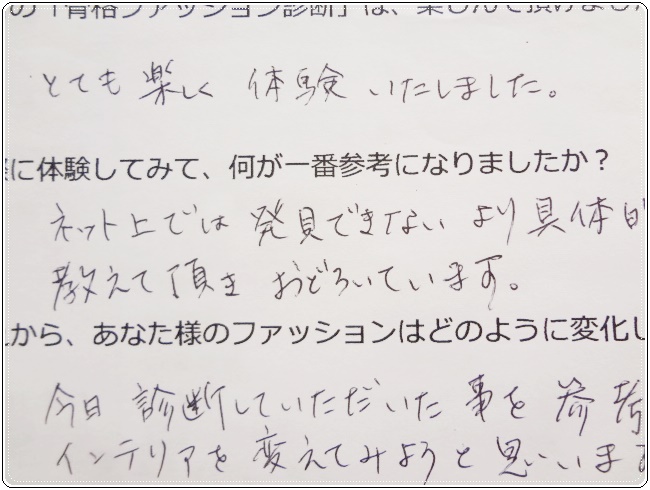 の「骨格ファッション診断」は、楽しんで頂けまし
とても楽しく 体験 いたしました。
に体験してみて、何が一番参考になりましたか?
ネット上では 発見できない より具体的
教えて頂き おどろいています。
から、あなた様のファッションはどのように変化し
今日 診断していただいた 事を 参考
インテリアを変えてみようと思いいます